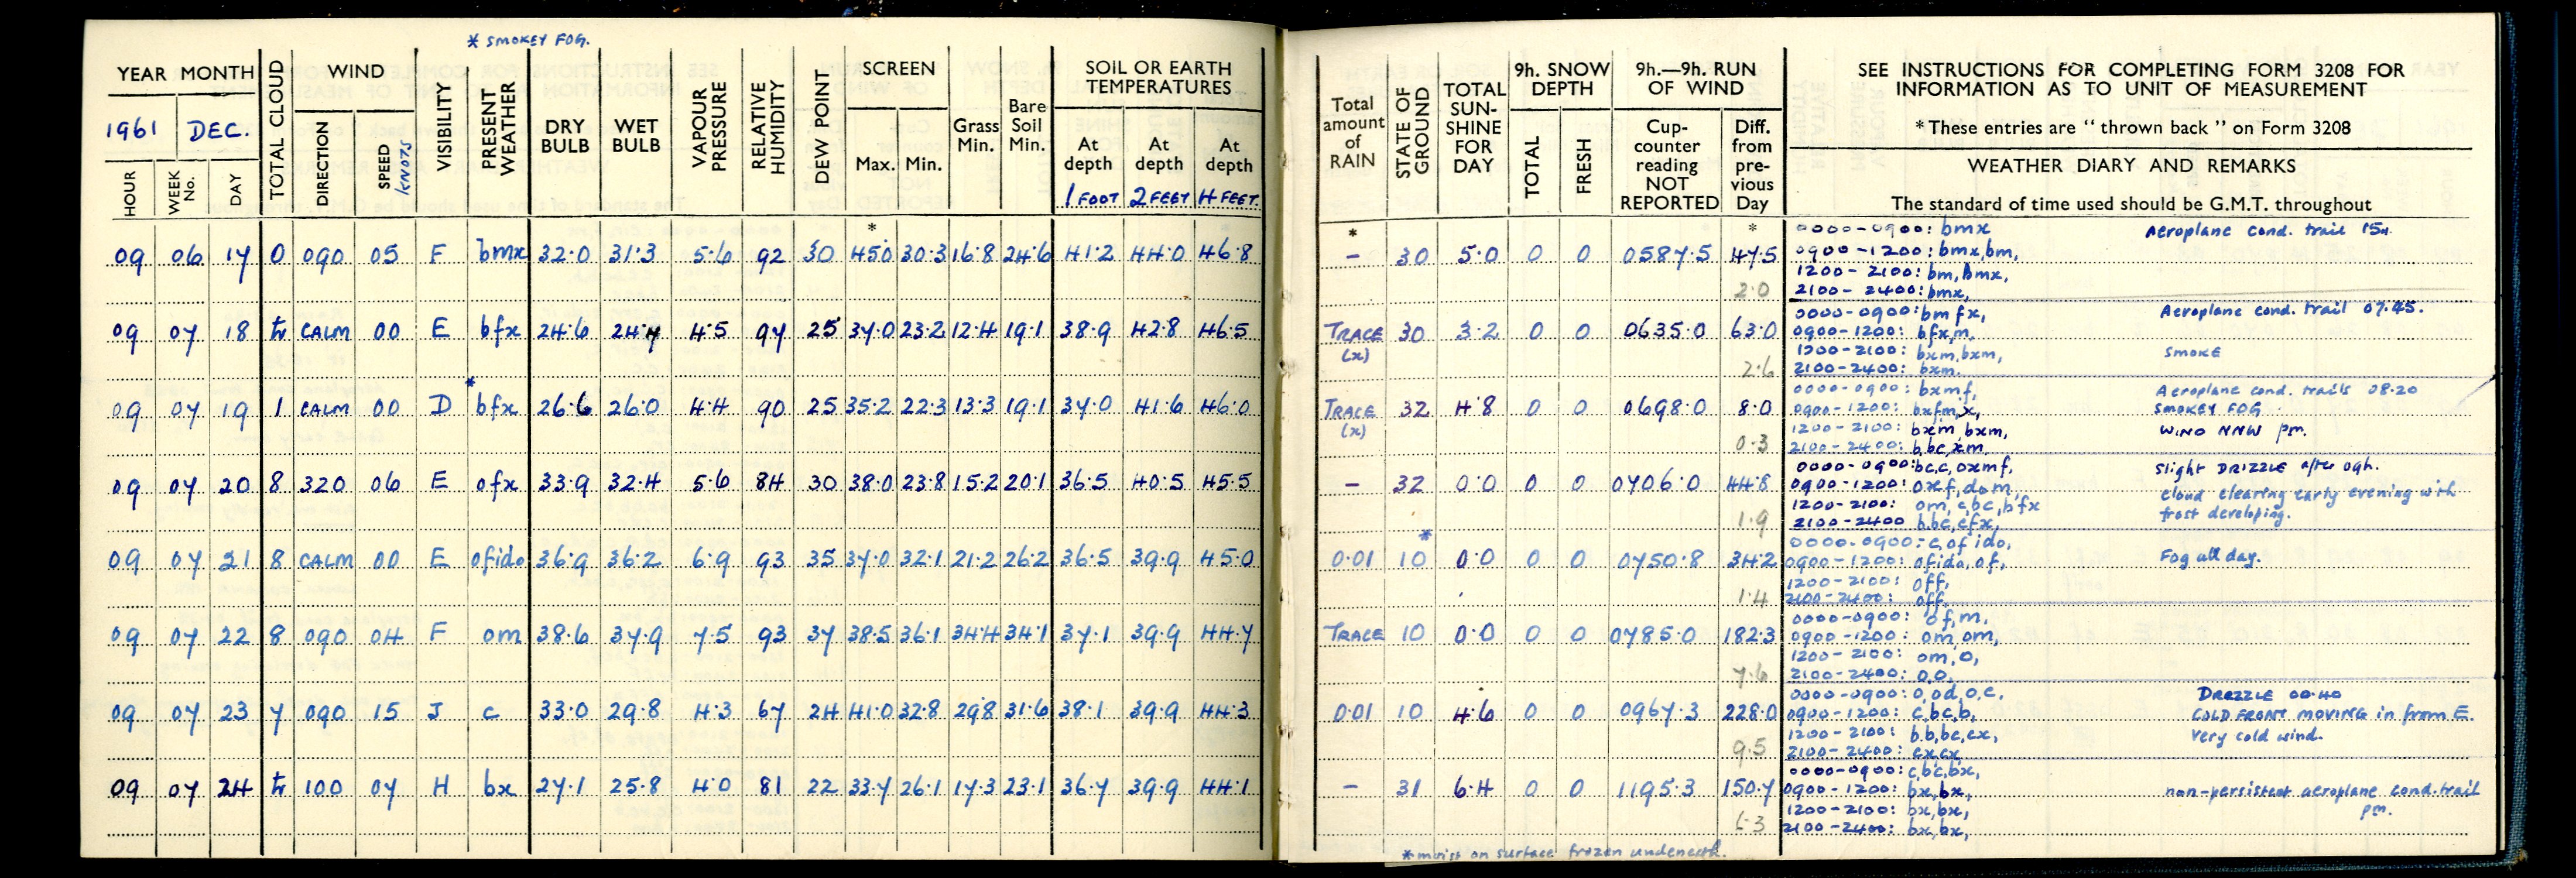 * SMOKEY FOG.
YEAR MONTH TOTAL CLOUD WIND VISIBILITY PRESENT WEATHER DRY BULB WET BULB VAPOUR PRESSURE RELATIVE HUMIDITY DEW POINT SCREEN Grass Min. Bare Soil Min. SOIL OR EARTH TEMPERATURES
1961 DEC.
HOUR WEEK No. DAY DIRECTION SPEED KNOTS Max. Min. At depth At depth At depth
1 FOOT 2 FEET 4 FEET
*
09 06 17 0 090 05 F bmx 32.0 31.3 5.6 92 30 45.0 30.3 16.8 24.6 41.2 44.0 46.8
09 07 18 tr CALM 00 E bfx 24.6 24.4 4.5 97 25 37.0 23.2 12.4 19.1 38.9 42.8 46.5
*
09 07 19 1 CALM 00 D bfx 26.6 26.0 4.4 90 25 35.2 22.3 13.3 19.1 37.0 41.6 46.0
09 07 20 8 320 06 E ofx 33.9 32.4 5.6 84 30 38.0 23.8 15.2 20.1 36.5 40.5 45.5
09 07 21 8 CALM 00 E ofido 36.9 36.2 6.9 93 35 37.0 32.1 21.2 26.2 36.5 39.9 45.0
09 07 22 8 090 04 F om 38.6 37.9 7.5 93 37 38.5 36.1 34.4 34.1 37.1 39.9 44.7
09 07 23 7 090 15 J c 33.0 29.8 4.3 67 24 41.0 32.8 29.8 31.6 38.1 39.9 44.3
09 07 24 tr 100 07 H bx 27.1 25.8 4.0 81 22 33.7 26.1 17.3 23.1 36.7 39.9 44.1
Total amount of RAIN STATE OF GROUND TOTAL SUN-SHINE FOR DAY 9h. SNOW DEPTH 9h.—9h. RUN OF WIND
TOTAL FRESH Cup-counter reading NOT REPORTED Diff. from pre-vious Day
SEE INSTRUCTIONS FOR COMPLETING FORM 3208 FOR
INFORMATION AS TO UNIT OF MEASUREMENT
* These entries are “ thrown back ” on Form 3208
WEATHER DIARY AND REMARKS
The standard of time used should be G.M.T. throughout
* *
– 30 5.0 0 0 0587.5 47.5
2.0
0000-0900: bmx Aeroplane cond. trail
0900-1200: bmx,bm,
1200-2100: bm,bmx,
2100-2400: bmx,
TRACE (x) 30 3.2 0 0 0635.0 63.0
2.6
0000-0900: bmfx, Aeroplane cond. trail 07.45.
0900-1200: bfx,m,
1200-2100: bxm,bxm, SMOKE
2100-2400: bxm.
TRACE (x) 32 4.8 0 0 0698.0 8.0
0.3
0000-0900: bxmf, Aeroplane cond. trails 08.20
0900-1200: bxfm,x, SMOKEY FOG
1200-2100: bxm bxm, WIND NNW pm.
2100-2400: b,bc,xm
– 32 0.0 0 0 0706.0 44.8
1.9
0000-0900: bc,c,oxmf, Slight DRIZZLE after 09h.
0900-1200: oxf,dom, cloud clearing early evening with
1200-2100: om,c,bc,bfx frost developing.
2100-2400 b,bc,cfx,
*
0.01 10 0.0 0 0 0750.8 34.2
1.4
0000-0900: c,of ido,
0900-1200: ofido,of, Fog all day.
1200-2100: off,
2100-2400: off,
TRACE 10 0.0 0 0 0785.0 182.3
7.6
0000-0900: of,m,
0900-1200: om,om,
1200-2100: om,o,
2100-2400: o,o.
0.01 10 4.6 0 0 0967.3 228.0
9.5
0000-0900: o,od,o,c, DRIZZLE 00.40
0900-1200: c,bc,b, COLD FRONT MOVING in from E.
1200-2100: b.b,bc,cx, Very cold wind.
2100-2400: cx,cx,
– 31 6.4 0 0 1195.3 150.7
6.3
0000-0900: c,bc,bx,
0900-1200: bx,bx, non-persistent aeroplane cond. trail
1200-2100: bx,bx, pm.
2100-2400: bx,bx,
* moist on surface frozen underneath.